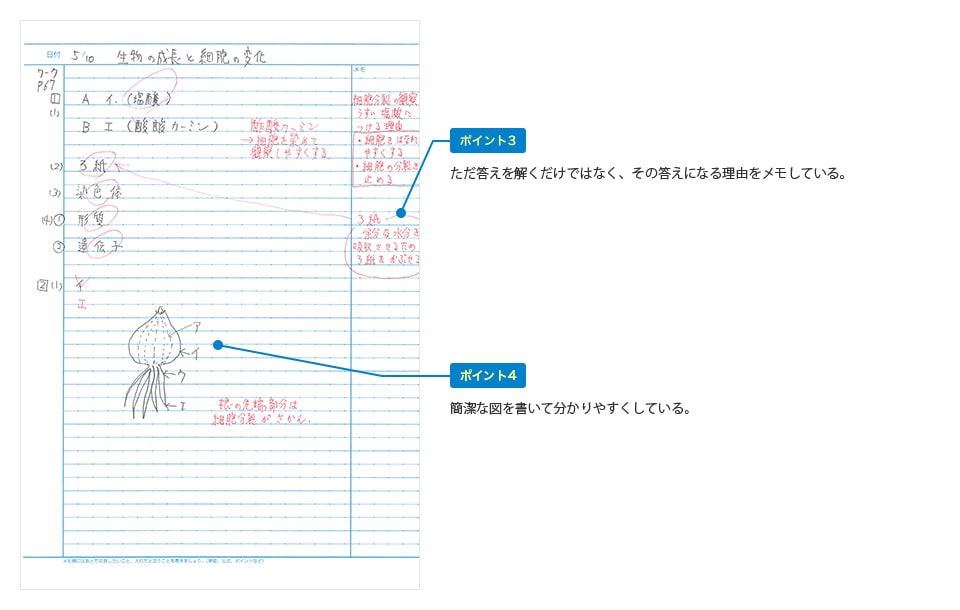 日付 5/10 生物の成長と細胞の変化
ワーク
P67
メモ
1 A イ.(塩酸)
(1)
B エ (酸酸カーミン)
酢酸カーミン
→細胞を染めて
観察しやすくする.
(2) ろ紙
(3) 染色体
(4)① 形質
③ 遺伝子
2 (1) イ
エ
ア
イ
ウ
エ
根の先端部分は
細胞分裂がさかん.
細胞分裂の観察
うすい塩酸に
つける理由
・細胞をはなれ
やすくする
・細胞の分裂を
止める
ろ紙
余分な水分を
吸収させるため
ろ紙をかぶせる
ポイント3
ただ答えを解くだけではなく、その答えになる理由をメモしている。
ポイント4
簡潔な図を書いて分かりやすくしている。